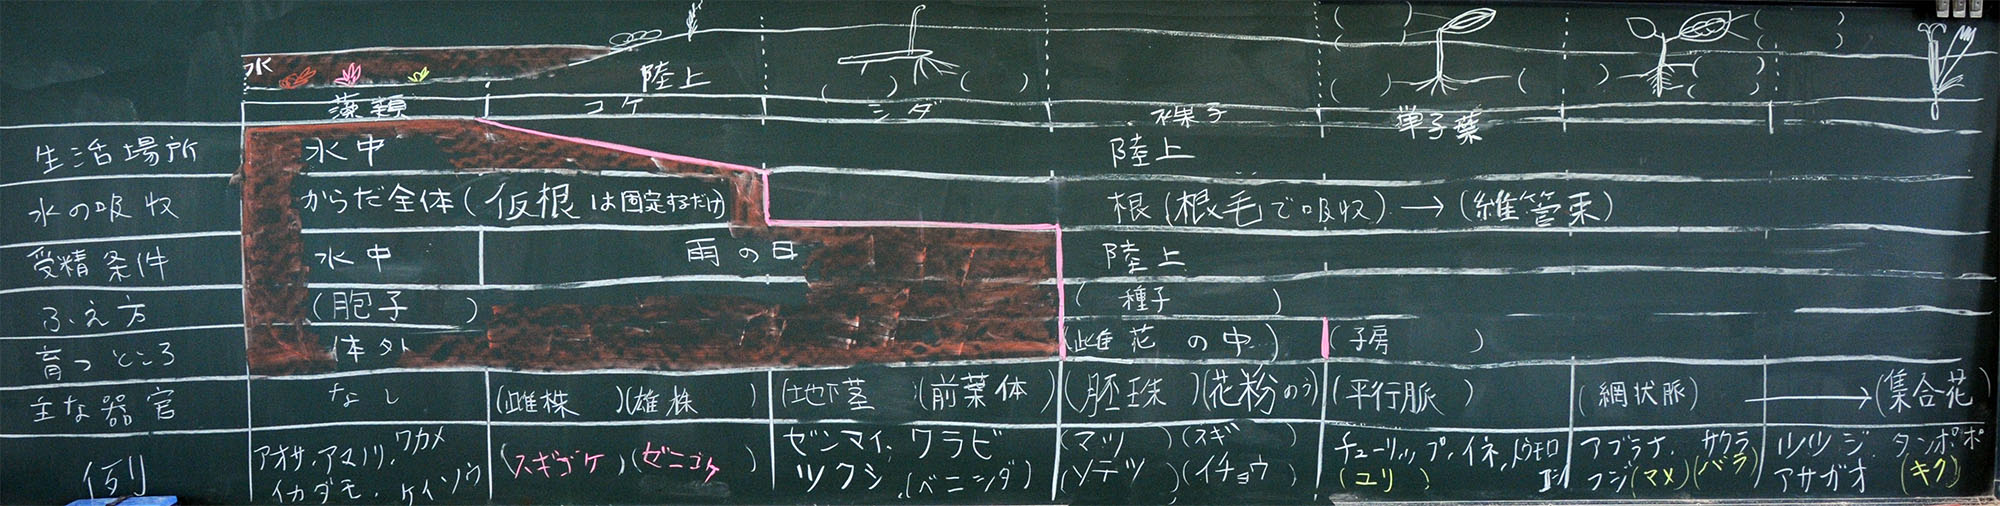 水
陸上
( ) ( ) ( ) ( ) ( ) ( ) ( ) ( )
藻類 コケ シダ 裸子 単子葉
生活場所 水中 陸上
水の吸収 からだ全体(仮根は固定するだけ) 根(根毛で吸収)→(維管束)
受精条件 水中 雨の日 陸上
ふえ方 (胞子 ) ( 種子 )
育つところ 体外 (雌花の中) (子房 )
主な器官 なし (雌株 )(雄株 ) (地下茎 )(前葉体) (胚珠 )(花粉のう) (平行脈 ) (網状脈) → (集合花)
例 アオサ、アマノリ、ワカメ
イカダモ、ケイソウ
(スギゴケ)(ゼニゴケ )
ゼンマイ、ワラビ
ツクシ、(ベニシダ)
(マツ )(スギ )
(ソテツ )(イチョウ )
チューリップ、イネ、トウモロコシ
(ユリ )
アブラナ、サクラ
フジ(マメ)(バラ)
ツツジ、タンポポ
アサガオ (キク)